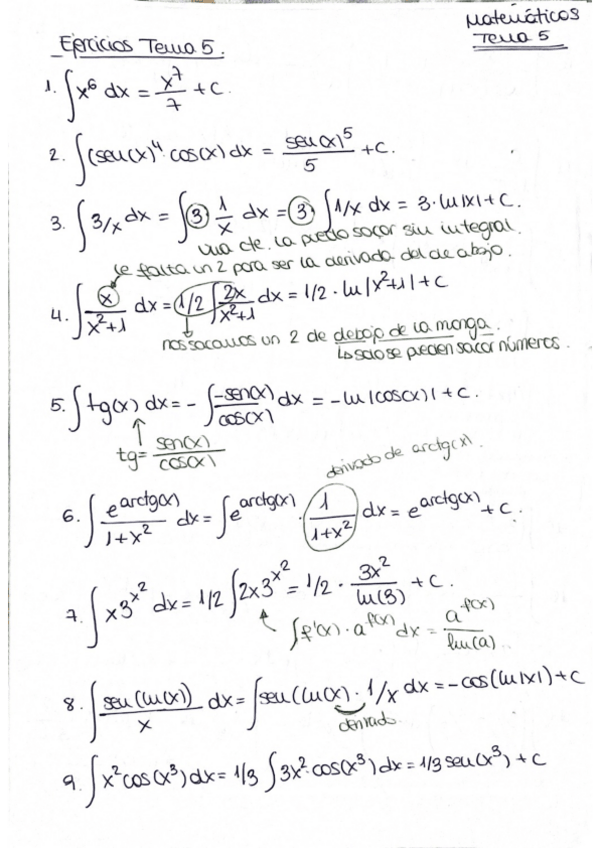 Matemáticas
Tema 5
Ejercicios Tema 5.
1. ∫x⁶ dx = x⁷/7 + C.
2. ∫(sen(x))⁴ · cos(x) dx = sen(x)⁵/5 + C.
3. ∫3/x dx = ∫3 · 1/x dx = 3 · ∫1/x dx = 3 · ln|x| + C.
una cte. la puedo sacar sin integral.
le falta un 2 para ser la derivada del de abajo.
4. ∫x/(x²+1) dx = 1/2 ∫2x/(x²+1) dx = 1/2 · ln|x²+1| + C
nos sacamos un 2 de debajo de la manga.
↳ solo se pueden sacar números.
5. ∫tg(x) dx = - ∫-sen(x)/cos(x) dx = -ln|cos(x)| + C.
tg = sen(x)/cos(x)
derivada de arctg(x).
6. ∫e^arctg(x)/(1+x²) dx = ∫e^arctg(x) · 1/(1+x²) dx = e^arctg(x) + C.
7. ∫x3^x² dx = 1/2 ∫2x3^x² = 1/2 · 3x²/ln(3) + C.
∫f'(x) · a^f(x) dx = a^f(x)/ln(a)
8. ∫sen(ln(x))/x dx = ∫sen(ln(x) · 1/x dx = -cos(ln|x|) + C
derivada.
9. ∫x² cos(x³) dx = 1/3 ∫3x² · cos(x³) dx = 1/3 sen(x³) + C